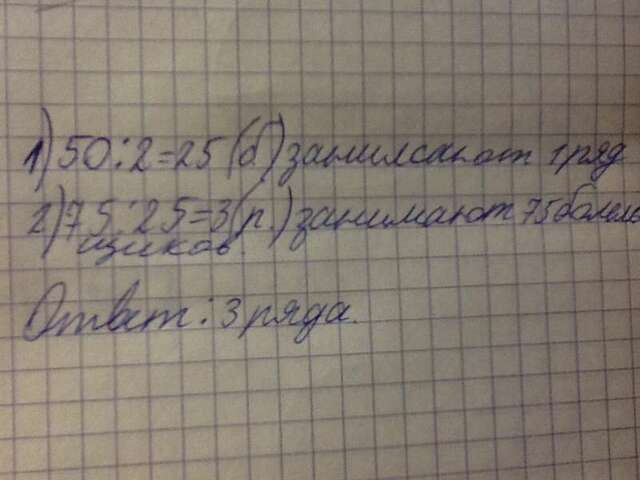 1) 50:2=25 (б) занимают 1 ряд
2) 75:25=3 (р.) занимают 75 болель
щиков.
Ответ: 3 ряда.